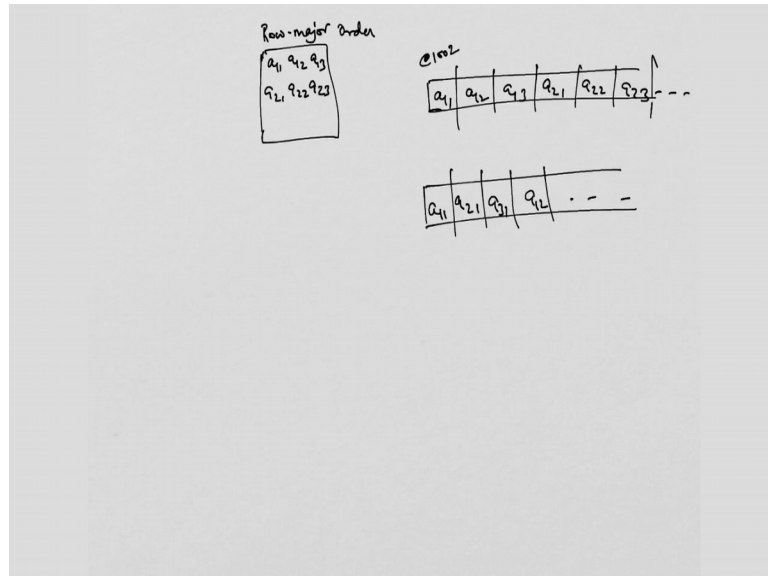 Row-major order
a11 a12 a13
a21 a22 a23
@1002
a11 a12 a13 a21 a22 a23 ---
a11 a21 a31 a12 . - -